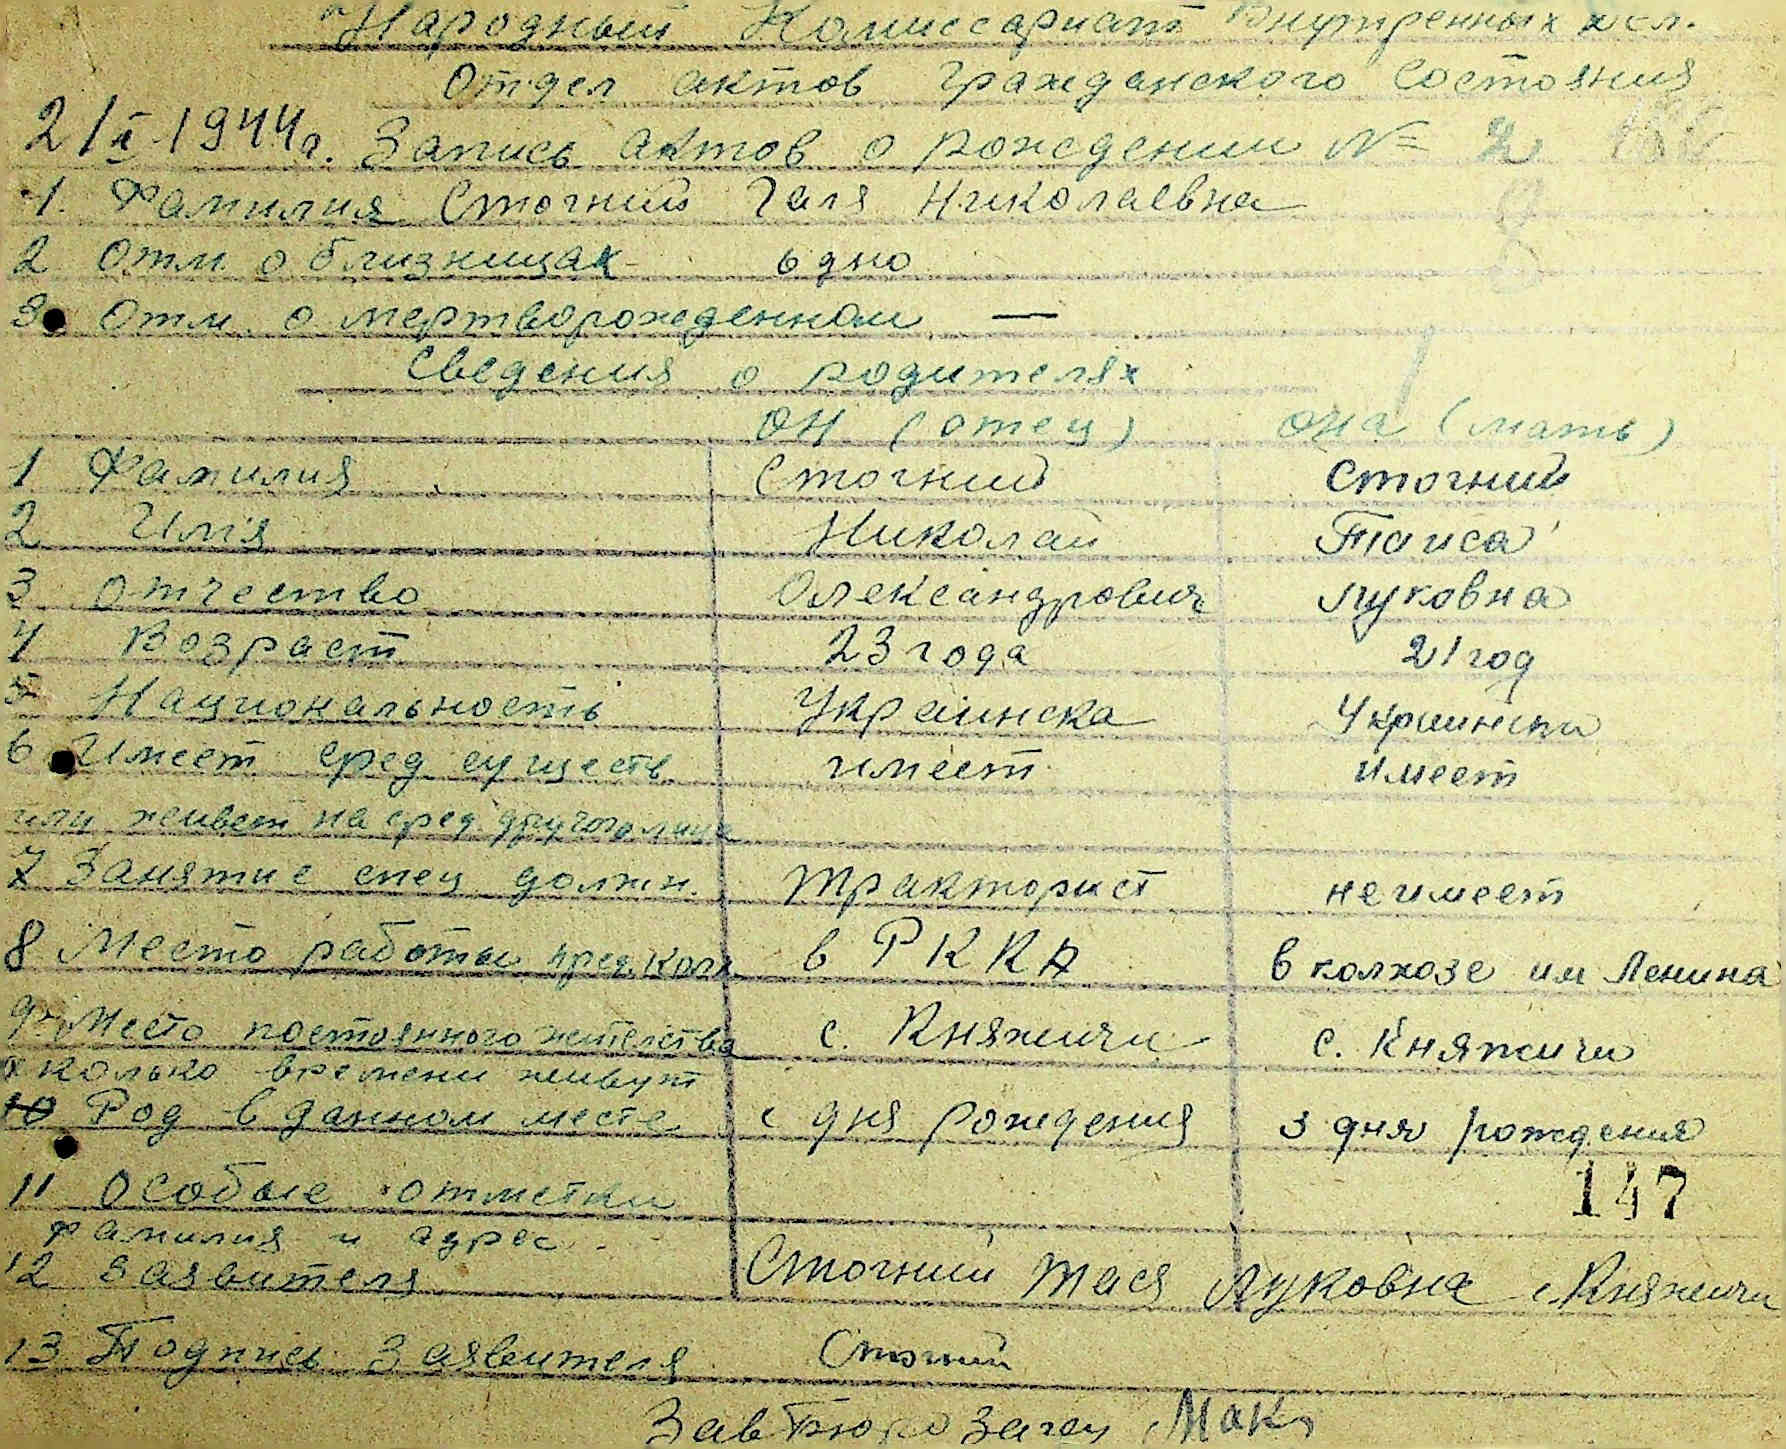 Народный Комиссариат Внутренных дел.
Отдел актов гражданского состояния
2/I 1944г. Запись актов о рождении № 2
1. Фамилия Стогний Галя Николаевна
2 Отм. о близницах одно
3. Отм. о мертворожденном —
Сведения о родителях
он (отец) она (мать)
1 Фамилия Стогний Стогний
2 Имя Николай Таиса
3 Отчество Олександрович Луковна
4 Возраст 23 года 21 год
5 Национальность Украинска Украинска
6 Имеет сред. существ имеет имеет
или живет на сред. другого лица
7 Занятие спец должн. тракторист не имеет
8 Место работы пред. колх в РККА в колхозе им Ленина
9 Место постоянного жителства с. Княжичи с. Княжичи
сколько времени живут
10 Род в данном месте с дня рождения з дня рождения
147
11 Особые отметки
фамилия и адрес
12 Заявителя Стогний Тася Луковна с. Княжичи
13 Подпись Заявителя Стогний
Зав Бюро Загс Мак